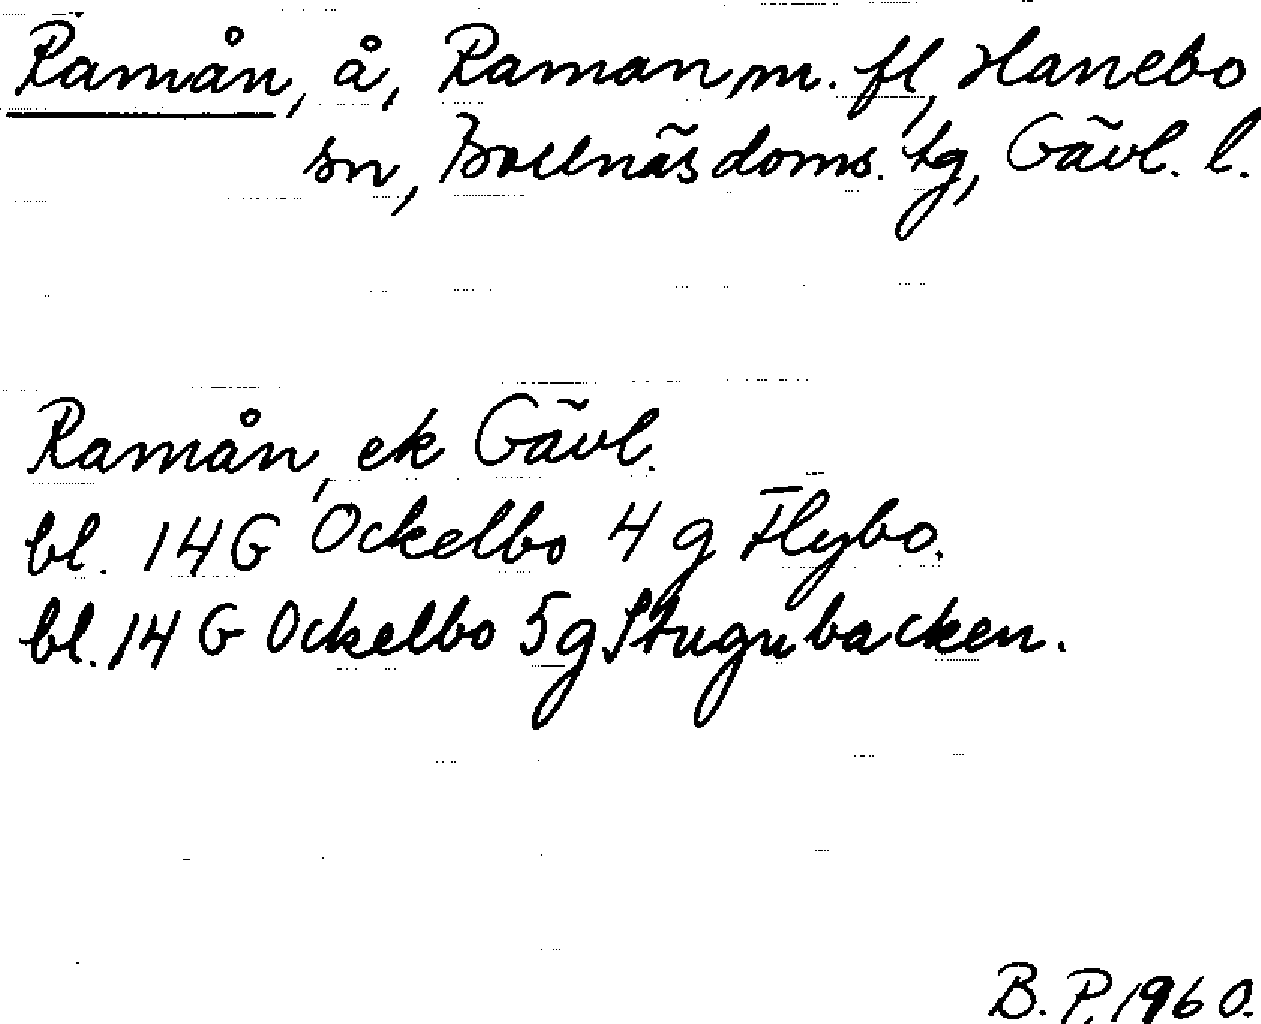 Ramån, å, Raman, m. fl, Hanebo
sn, Bollnäs doms. tg, Gävl. l.
Ramån, ek Gävl.
bl. 14 G Ockelbo 4 g Flybo.
bl. 14 G Ockelbo 5g Stugubacken.
B. P. 1960.